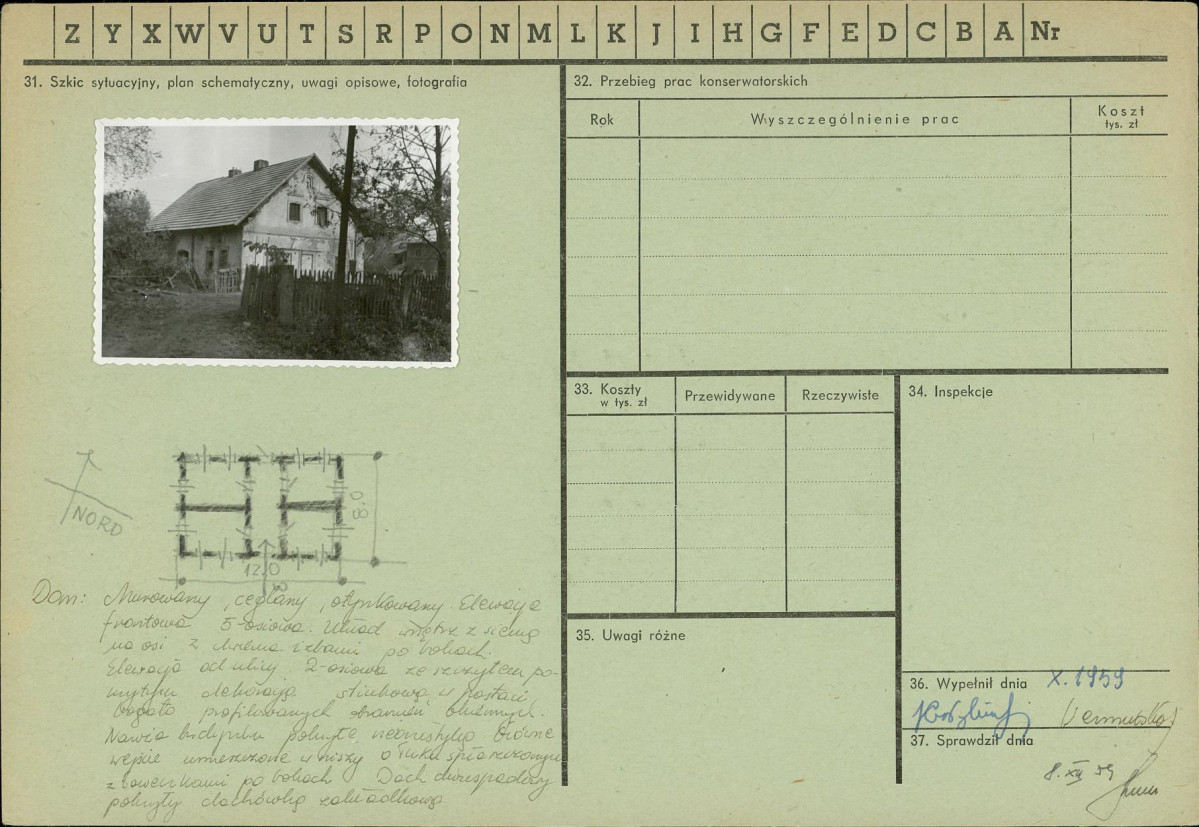 Z Y X W V U T S R P O N M L K J I H G F E D C B A Nr
31. Szkic sytuacyjny, plan schematyczny, uwagi opisowe, fotografia
NORD
8.0
12.0
Dom: Murowany, ceglany, otynkowany. Elewacja
frontowa 5-osiowa. Układ wnętrz z sienią
na osi z dwiema izbami po bokach.
Elewacja od ulicy 2-osiowa ze szczytem po-
krytym dekoracją stiukową w postaci
bogato profilowanych obramień okiennych.
pokryte Główne
wejście umieszczone w niszy o łuku spłaszczonym
z ławeczkami po bokach Dach dwuspadowy
pokryty dachówką zakładkową.
32. Przebieg prac konserwatorskich
Rok Wyszczególnienie prac Koszt
tys. zł
33. Koszty
w tys. zł Przewidywane Rzeczywiste
34. Inspekcje
35. Uwagi różne
36. Wypełnił dnia X.1959
37. Sprawdził dnia
8.XII 59